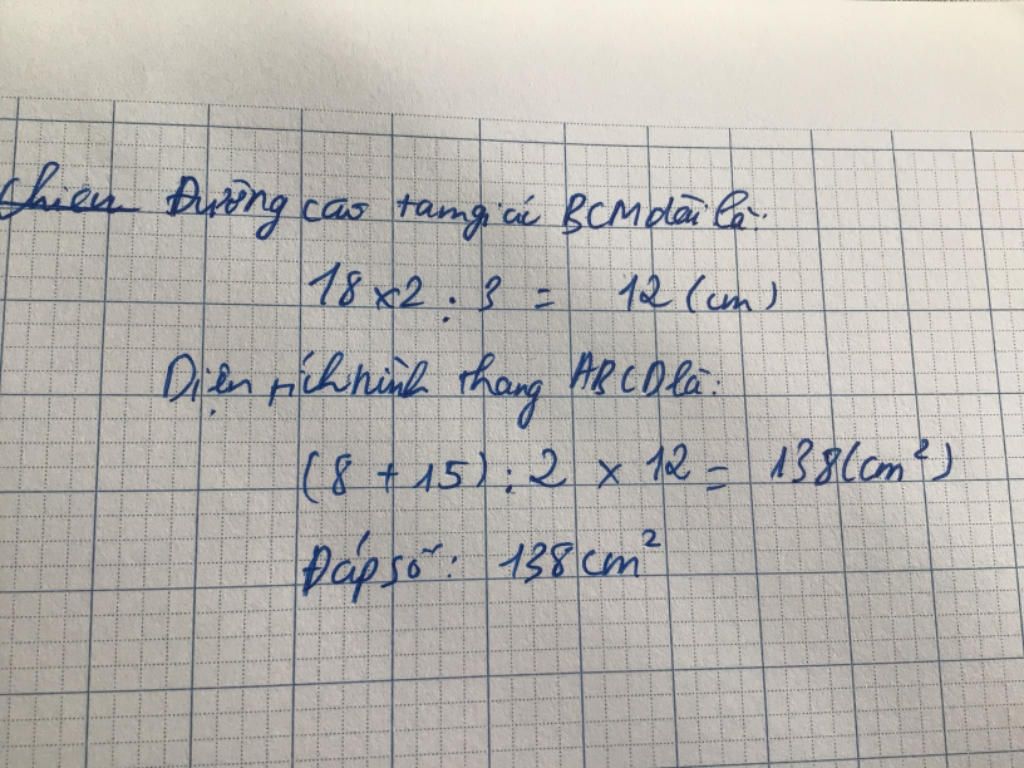 Chiều Đường cao tam giác BCM dài là:
18 x 2 : 3 = 12 (cm)
Diện tích hình thang ABCD là:
(8 + 15) : 2 x 12 = 138 (cm²)
Đáp số: 138 cm²